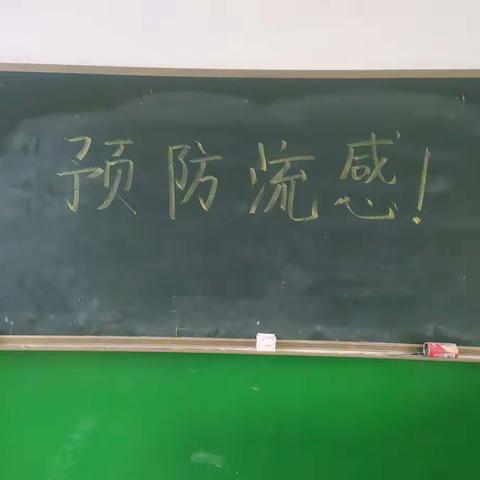 预防流感!